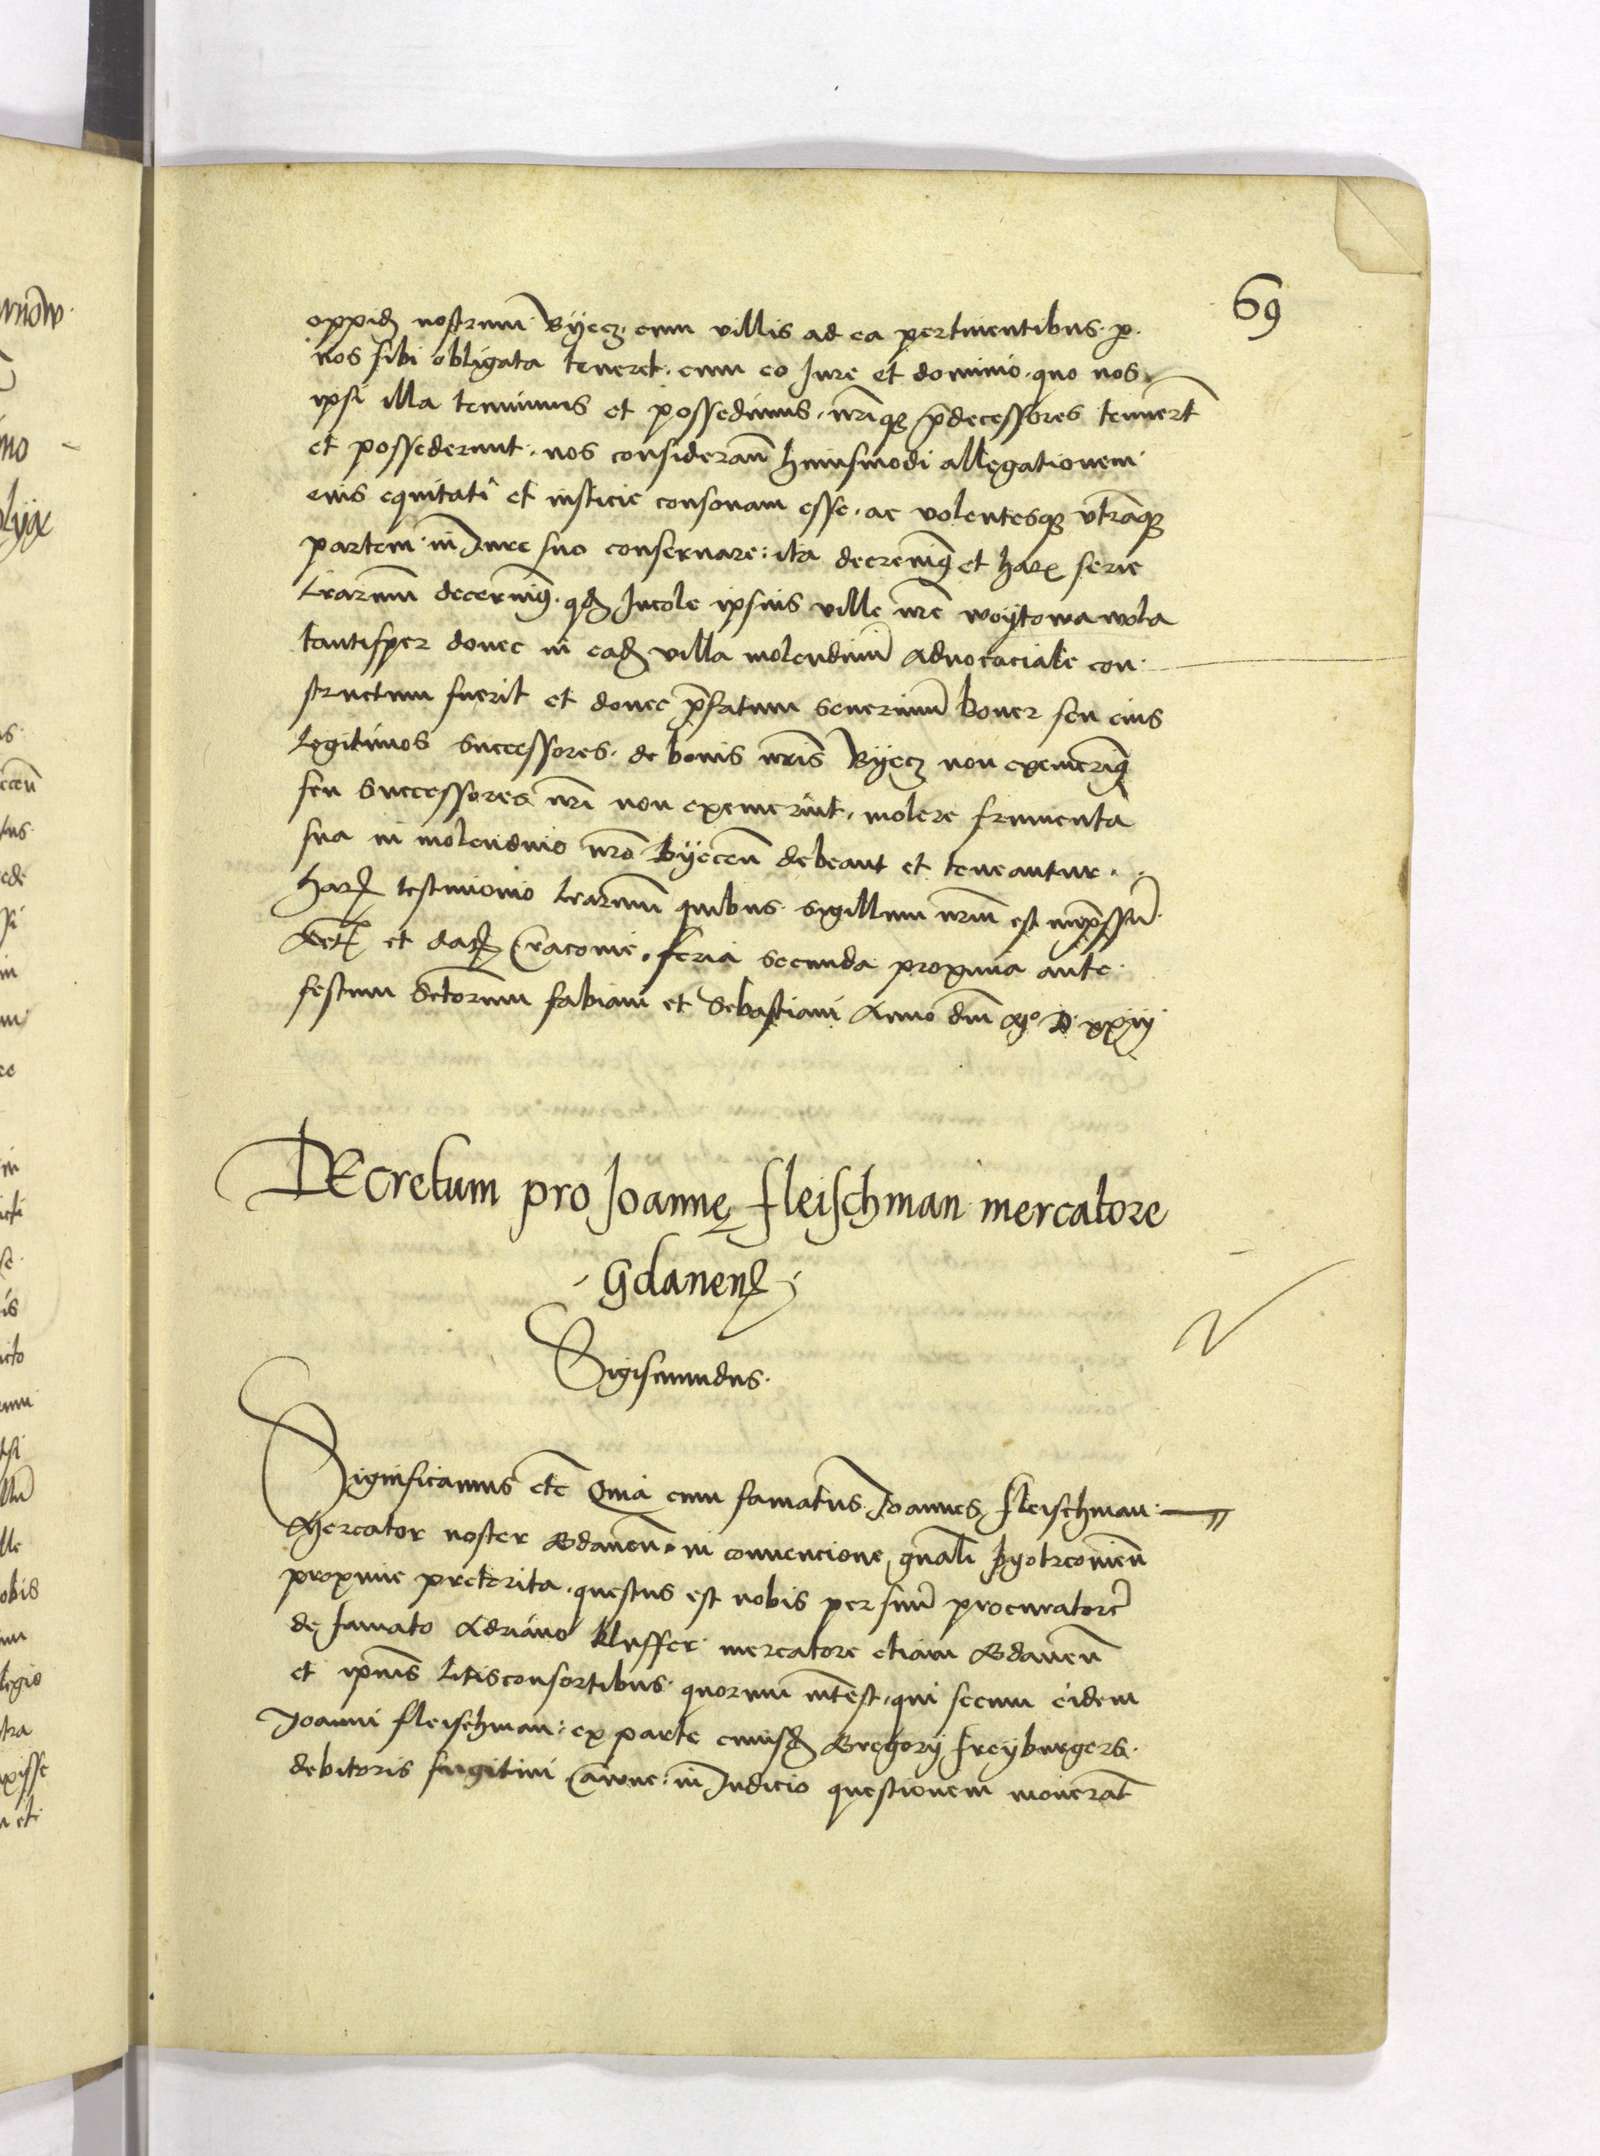 69
oppid₎ nostrum Byecz cum villis ad ea pertinentibus p̲
nos sibi obligata teneret cum eo Jure et dominio quo nos
ipsi illa tenuimus et possedimus nr̄iq₃ p̄decessores tenuer̄t
et possederunt nos consideran̄ huiusmodi allegationem
eius equitati et insticie consonam esse ac volentesq₃ vtrāq₃
partem in Jure suo conseruare: ita decreuim₉ et har₎ serie
lr̄arum decernim₉ qd₎ Incole ipsius ville nr̄e woytowa wola
tantisper donec in ead₎ villa molendinū Aduocaciale con
structum fuerit et donec p̄fatum Seuerinū Boner seu eius
legitimos Successores de bonis nr̄is Byecz non exemerim₉
seu Successores nr̄i non exemerint molere frumenta
sua in molendino nr̄o Byecen̄ debeant et teneantur
har₎ testimonio lr̄arum quibus sigillum nr̄m est imp̄ssū
Act₎ et dat₎ Cracouie feria secunda proxima ante
festum Sctorum fabiani et Sebastiani Anno dn̄i Mº D xxiij
DEcretum pro Joannę fleischman mercatore
Gdanen₎
Sigismundus
Significamus etc̄ Quia cum famatus Joannes fleischman
Mercator noster Gdanen̄ in conuencione gn̄ali Pyotrcouien̄
proxime preterita questus est nobis per suū procuratorē
de famato Adriano kluffer mercatore etiam Gdanen̄
et ip̄ius litisconsortibus quorum int̄est qui secum eidem
Joanni fleischman ex parte cuiusd₎ Gregorÿ freyburgers
debitoris fugitiui coram̄e in Judicio questionem mouerāt